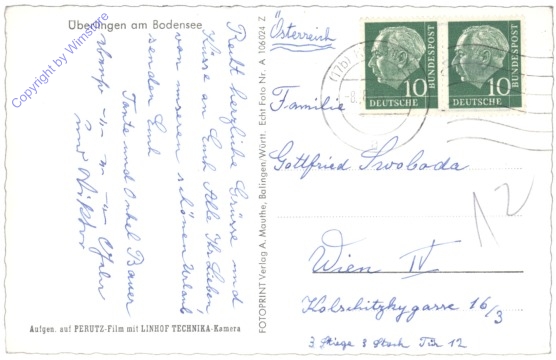 Überlingen am Bodensee
Recht herzliche Grüsse und
Küsse an Euch Alle Ihr Lieben
von unserem schönen Urlaub
senden Euch
Tante und Onkel Bauer
und Viktor
Aufgen. auf PERUTZ-Film mit LINHOF TECHNIKA-Kamera
FOTOPRINT Verlag A. Mauthe, Balingen/Württ. Echt Foto Nr. A 106024 Z
Österreich
DEUTSCHE
BUNDESPOST
10
DEUTSCHE
BUNDESPOST
10
Familie
Gottfried Swoboda
12
Wien IV
Kolschitzkygasse 16/3
3 Stiege 3 Stock Tür 12
Copyright by Wimstore